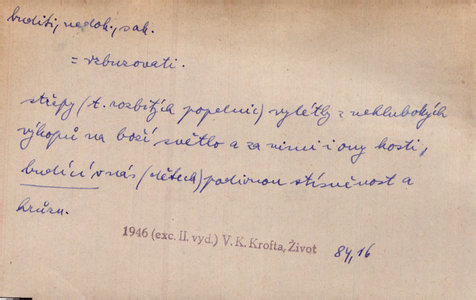 buditi, nedok., sak.
= vzbuzovati.
střepy (t. rozbitých popelnic) vylétly z nehlubokých
výkopů na boží světlo a za nimi i ony kosti,
budící v nás (dětech) podivnou stísněnost a
hrůzu.
1946 (exc. II. vyd.) V. K. Krofta, Život 84,16